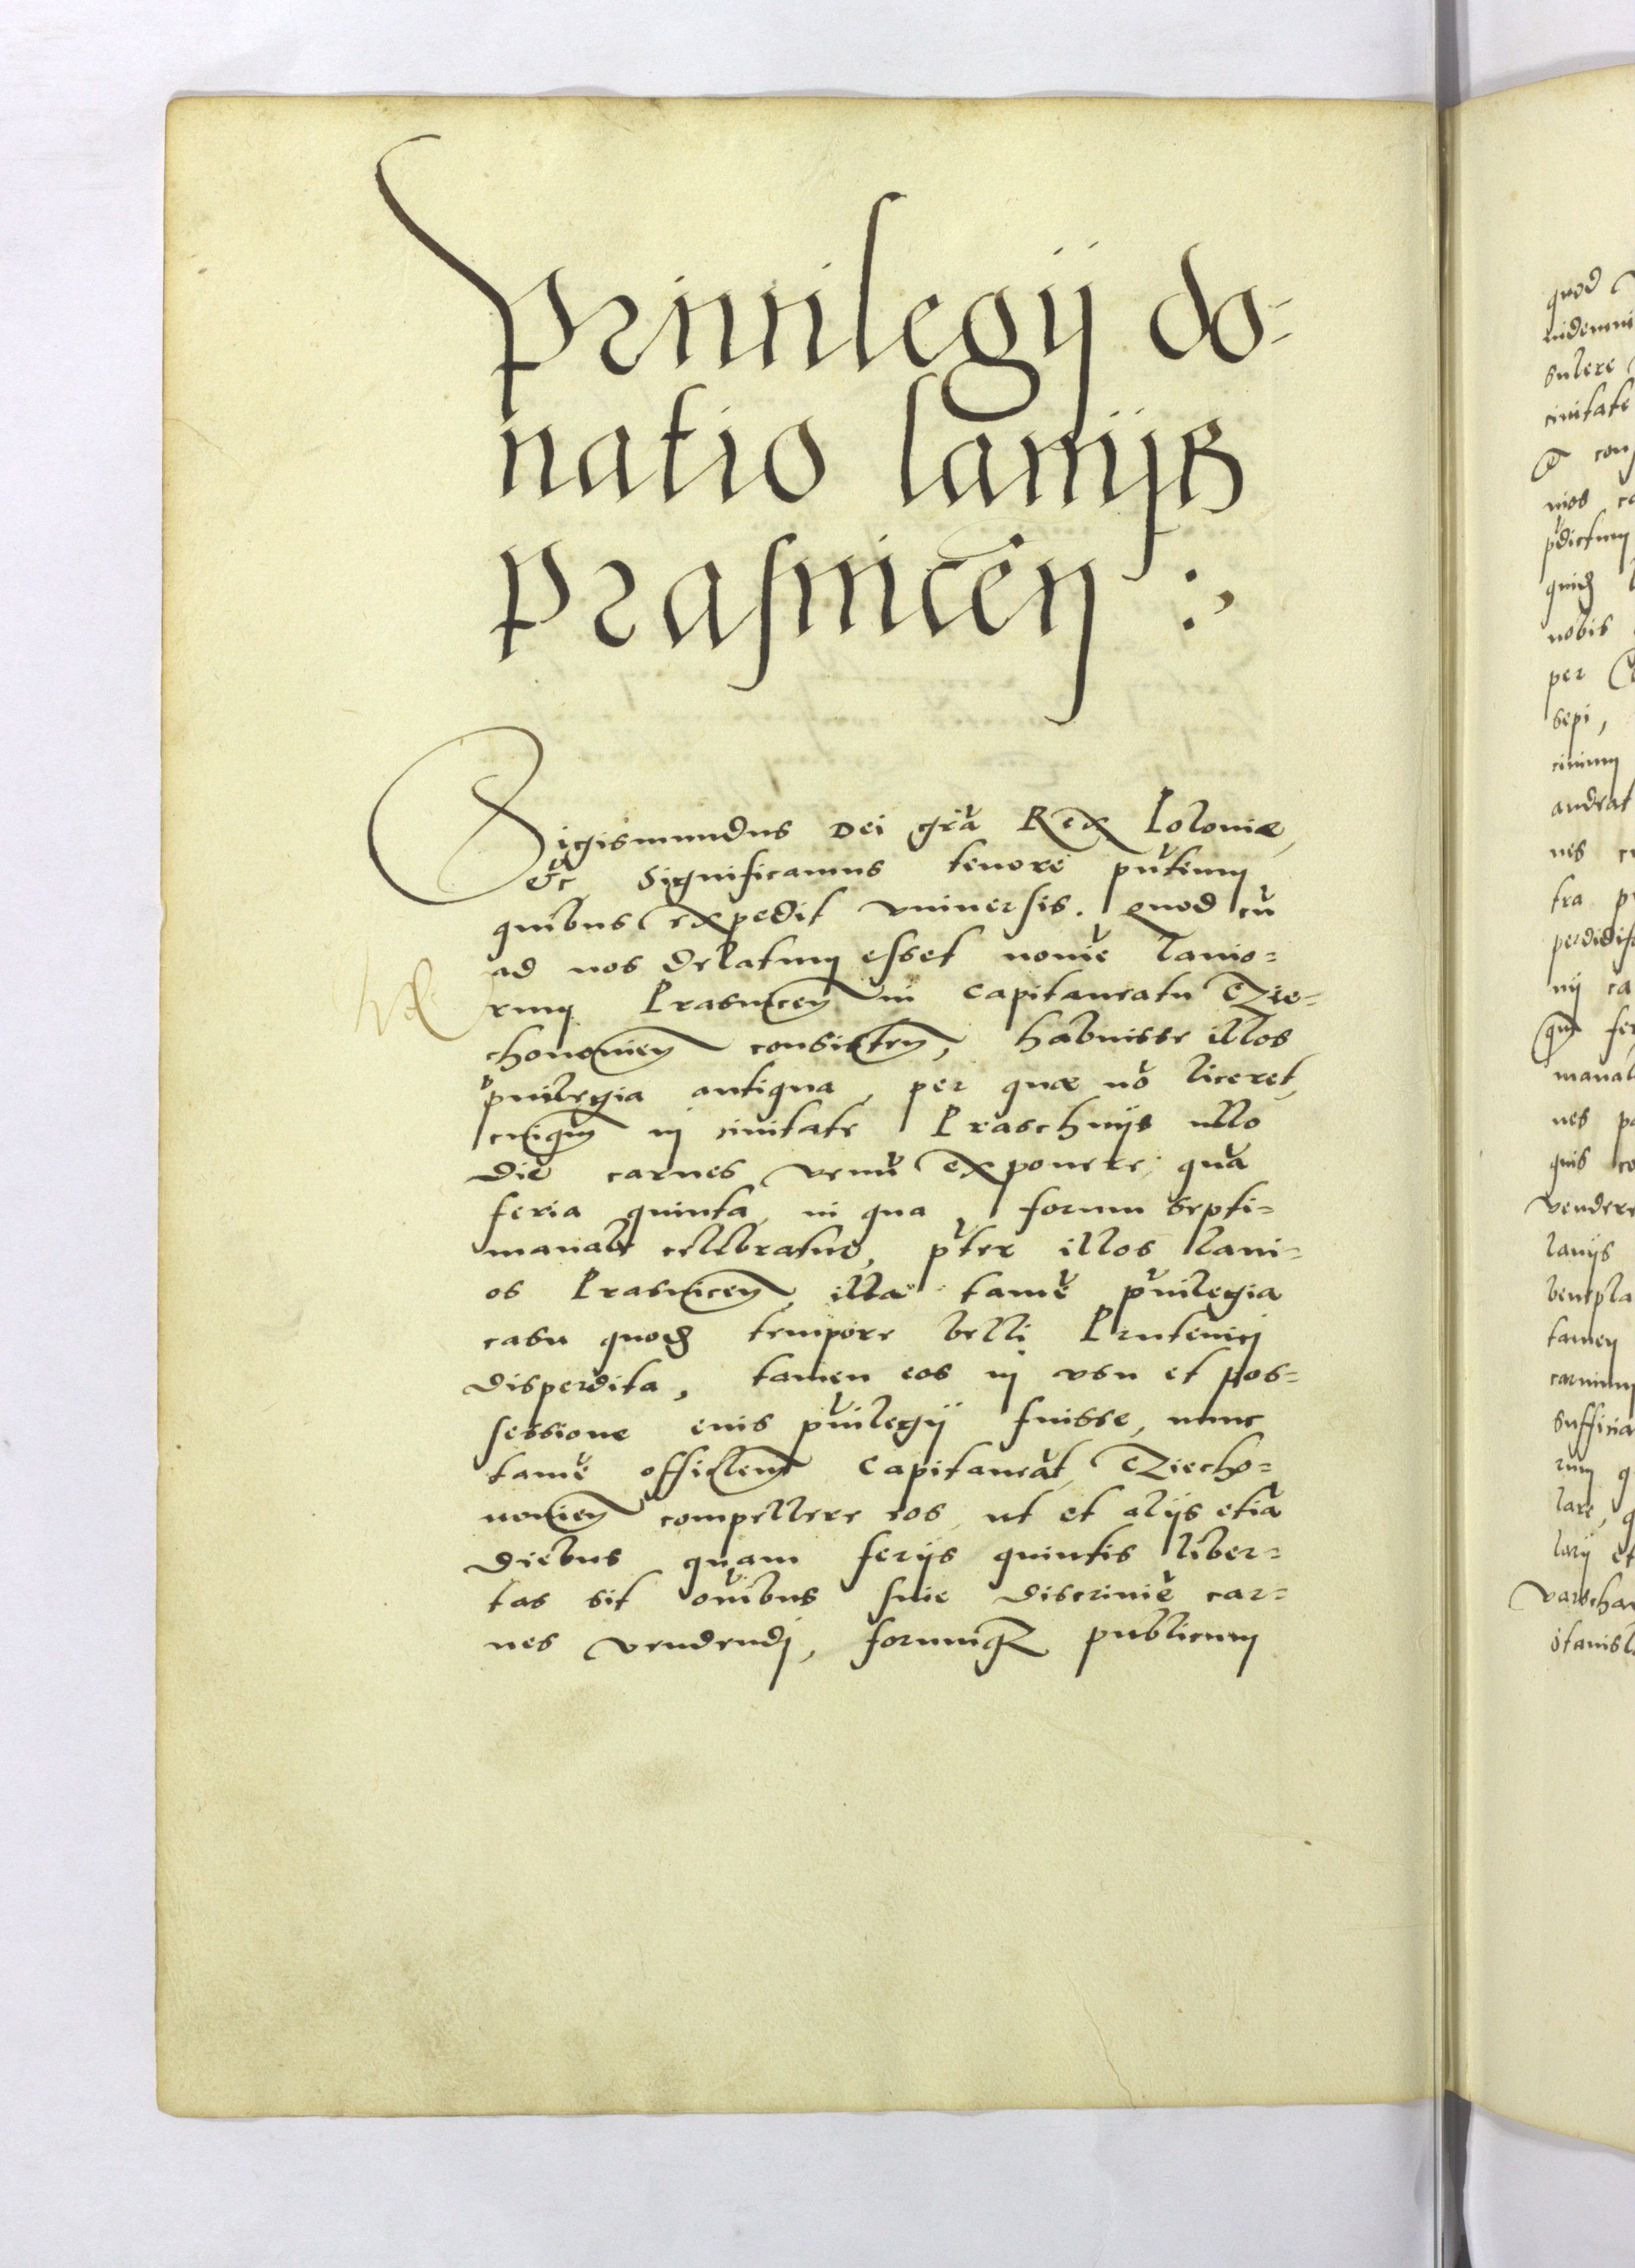 Priuilegij do-
natio lanijs
Prasnicen̄ :
Sigismundus Dei gr̄a Rex Poloniæ,
&c Significamus tenore pn̄tium
quibus expedit vniuersis. Quod cū
ad nos delatum esset noīe lanio=
rum Prasnicen̄ in Capitaneatu Czie=
chonouien̄ consisten̄, habuisse illos
priuilegia antiqua, per quæ nō liceret
cuiquam in ciuitate Praschnijs vllo
die carnes venū exponere; quā
feria quinta, in qua, forum septi=
manale celebratur, pr̄ter illos lani=
os Prasnicen̄, illa tamē priuilegia
casu quodam tempore belli Prutenici
disperdita, tamen eos in vsu et pos=
sessione eius priuilegij fuisse, nunc
tamē officialem Capitaneat Cziecho=
nouien̄ compellere eos, ut et alijs etiā
diebus quam ferijs quintis liber=
tas sit oībus sine discrimīe car=
nes vendendi, forumq̄ publicum
quod
indemni
sulere
ciuitate
con
nios
pdictum
nobis
per
sepi,
ciuium
audeat
nes
tra
manal
nes
quis
vendere
lanijs
benepla
tamen
carnium
rum
lare,
larij et
Varschau
Stanisl